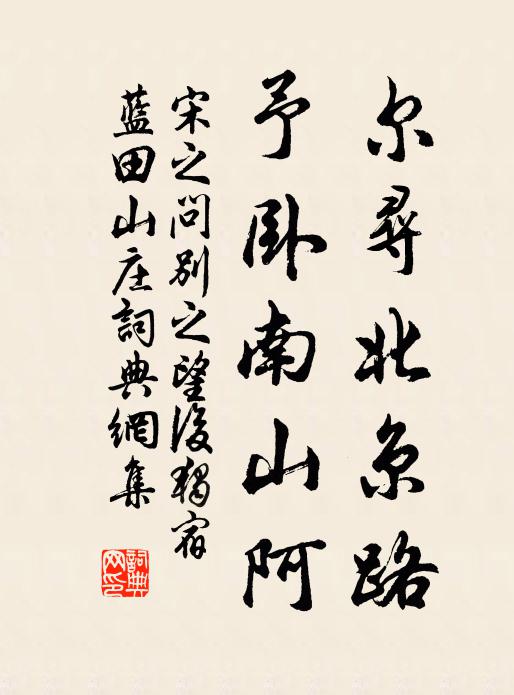 尔尋北京路
予卧南山阿
宋之问别之望後獨宿
藍田山庄詞典網集
詞典
网印